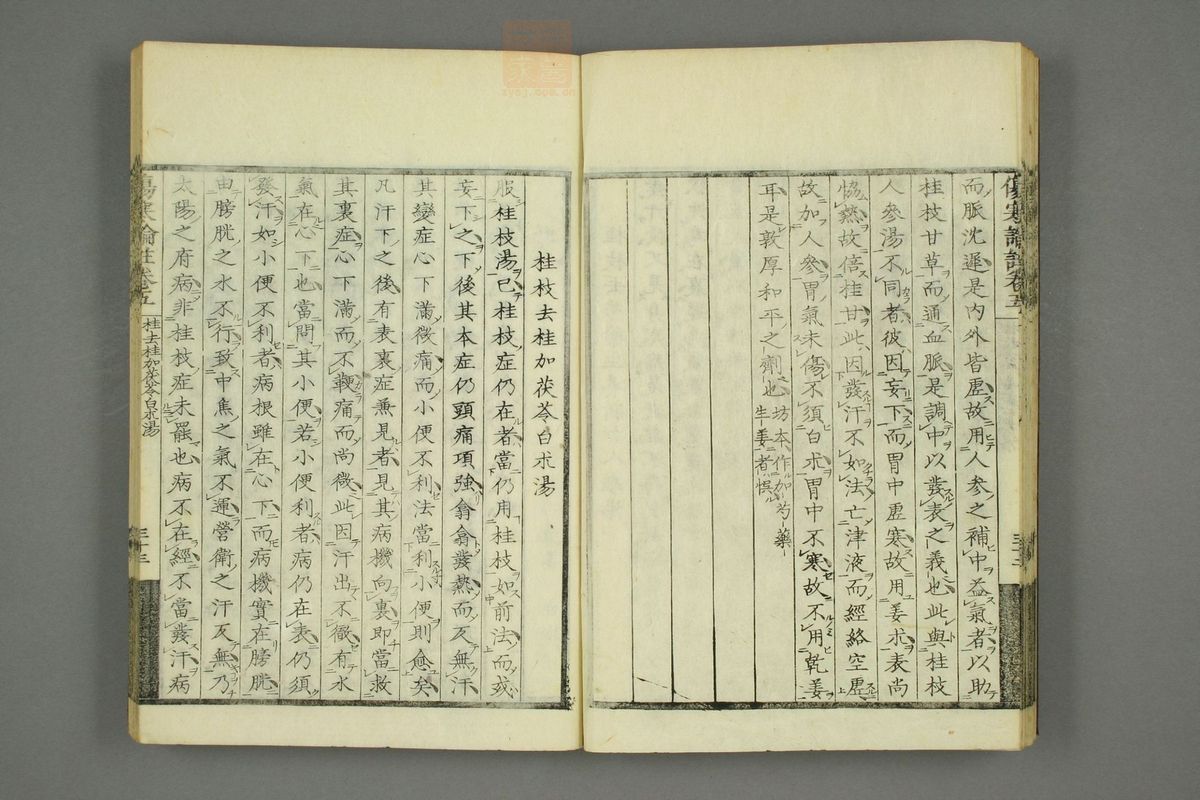 而脈沈遲是内外皆虛故用人參之補中益氣者以助
桂枝甘草而通血脈是調中以發表之義也此與桂枝
人參湯不同者彼因妄下而胃中虛寒故用姜朮表尚
恊熱故倍桂甘此因發汗不如法亡津液而經絡空虛
故加人參胃氣未傷不須白朮胃中不寒故不用乾姜
耳是敦厚和平之劑也 坊本作加芍藥
生姜者悞
桂枝去桂加茯苓白朮湯
服桂枝湯已桂枝症仍在者當仍用桂枝如前法而或
妄下之下後其本症仍頭痛項強翕翕發熱而反無汗
其變症心下滿微痛而小便不利法當利小便則愈矣
凡汗下之後有表裏症兼見者見其病機向裏即當救
其裏症心下滿而不鞕痛而尚微此因汗出不徹有水
氣在心下也當問其小便若小便利者病仍在表仍須
發汗如小便不利者病根雖在心下而病機實在膀胱
由膀胱之水不行致中焦之氣不運營衛之汗反無乃
太陽之府病非桂枝症未罷也病不在經不當發汗病
傷寒論註卷五
桂去桂加茯苓白朮湯